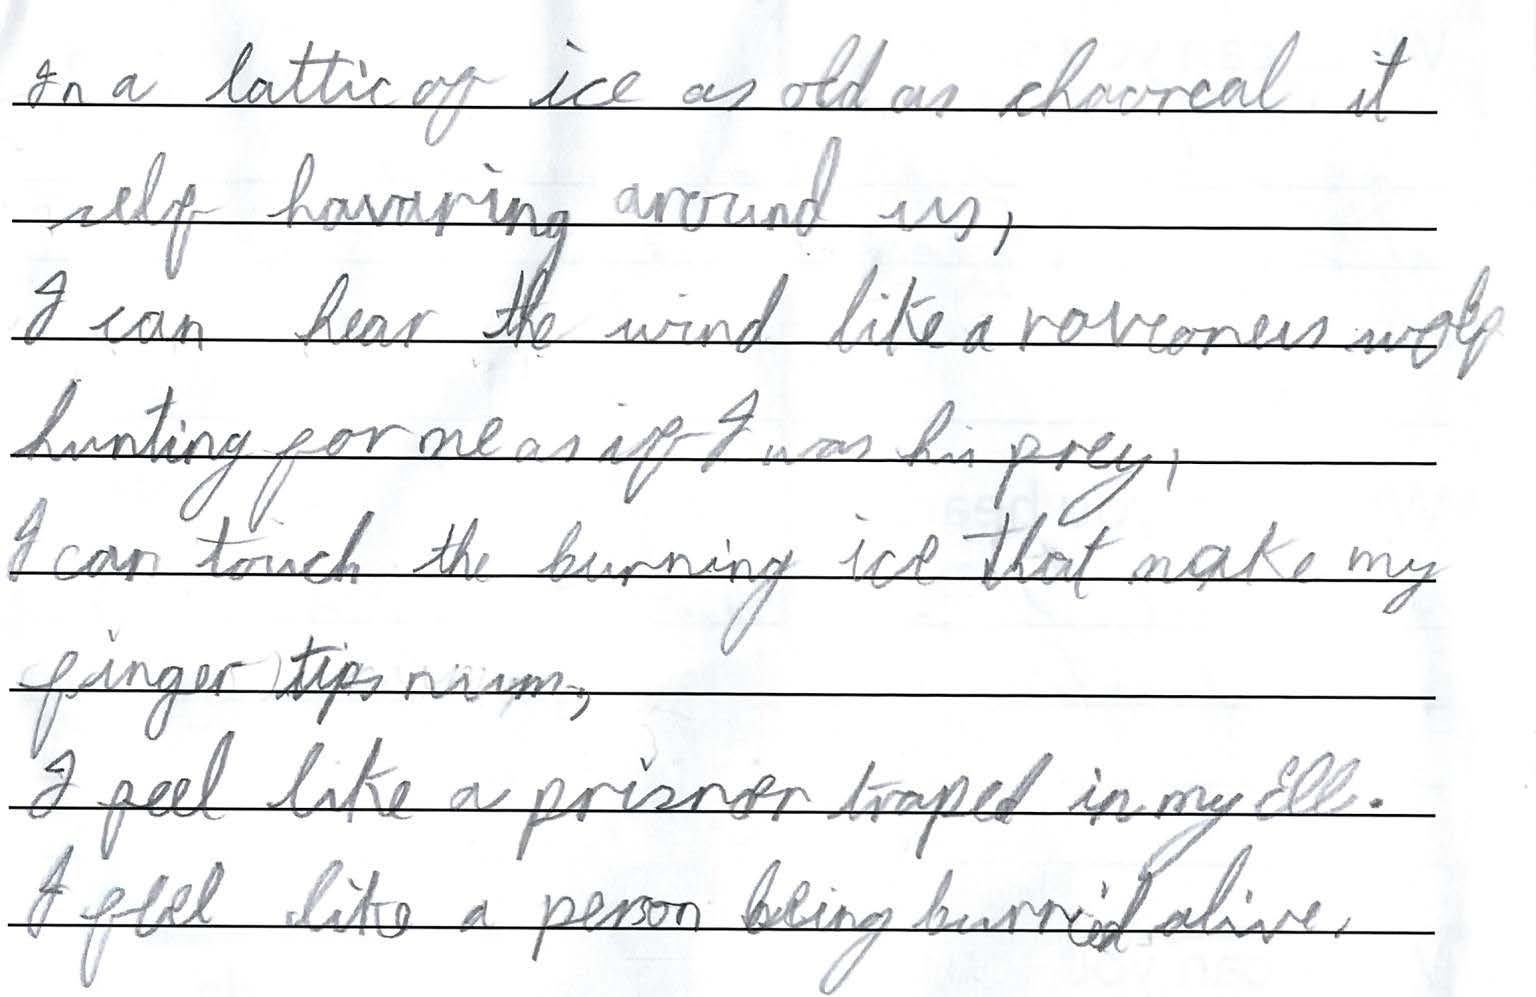 In a lattic of ice as old as chaorcal it
self havaring around us,
I can hear the wind like a raveoneus wolf
hunting for me as if I was his prey,
I can touch the burning ice that make my
finger tips num,
I feel like a prisner traped in my cell.
I feel like a person being burried alive.